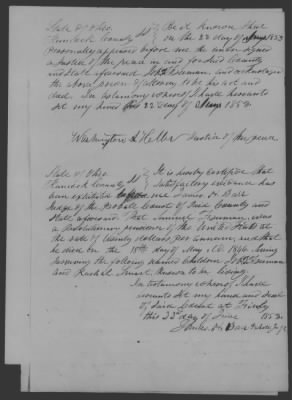 State of Ohio
Hancock County } SS Be it Known that
on the 22 day of 1853
Personally appeared before me the under signed
a Justice of the peace in and for said County
and State aforesaid Freeman, and acknowledged
the above power of attorney to be his act and
deed. In testimony whereof I have hereunto
set my hand this 22 day of 1853.
Washington Heller Justice of the peace
State of Ohio
Hancock County } SS It is hereby Certified that
Satisfactory evidence has
been exhibited before me James H Barr
Judge of the Probate Court of Said County and
State aforesaid That Samuel Freeman was
a Revolutionary pensioner of the United States at
the rate of twenty dollars per annum and that
he died on the 18th day of May A.D. 1846 leaving
surviving the following named Children Freeman
and Rachel Smart Known to be living.
In testimony whereof I have
hereunto set my hand and Seal
of Said Court at Findley
this 22d day of June 1853
James H Barr Probate Judge